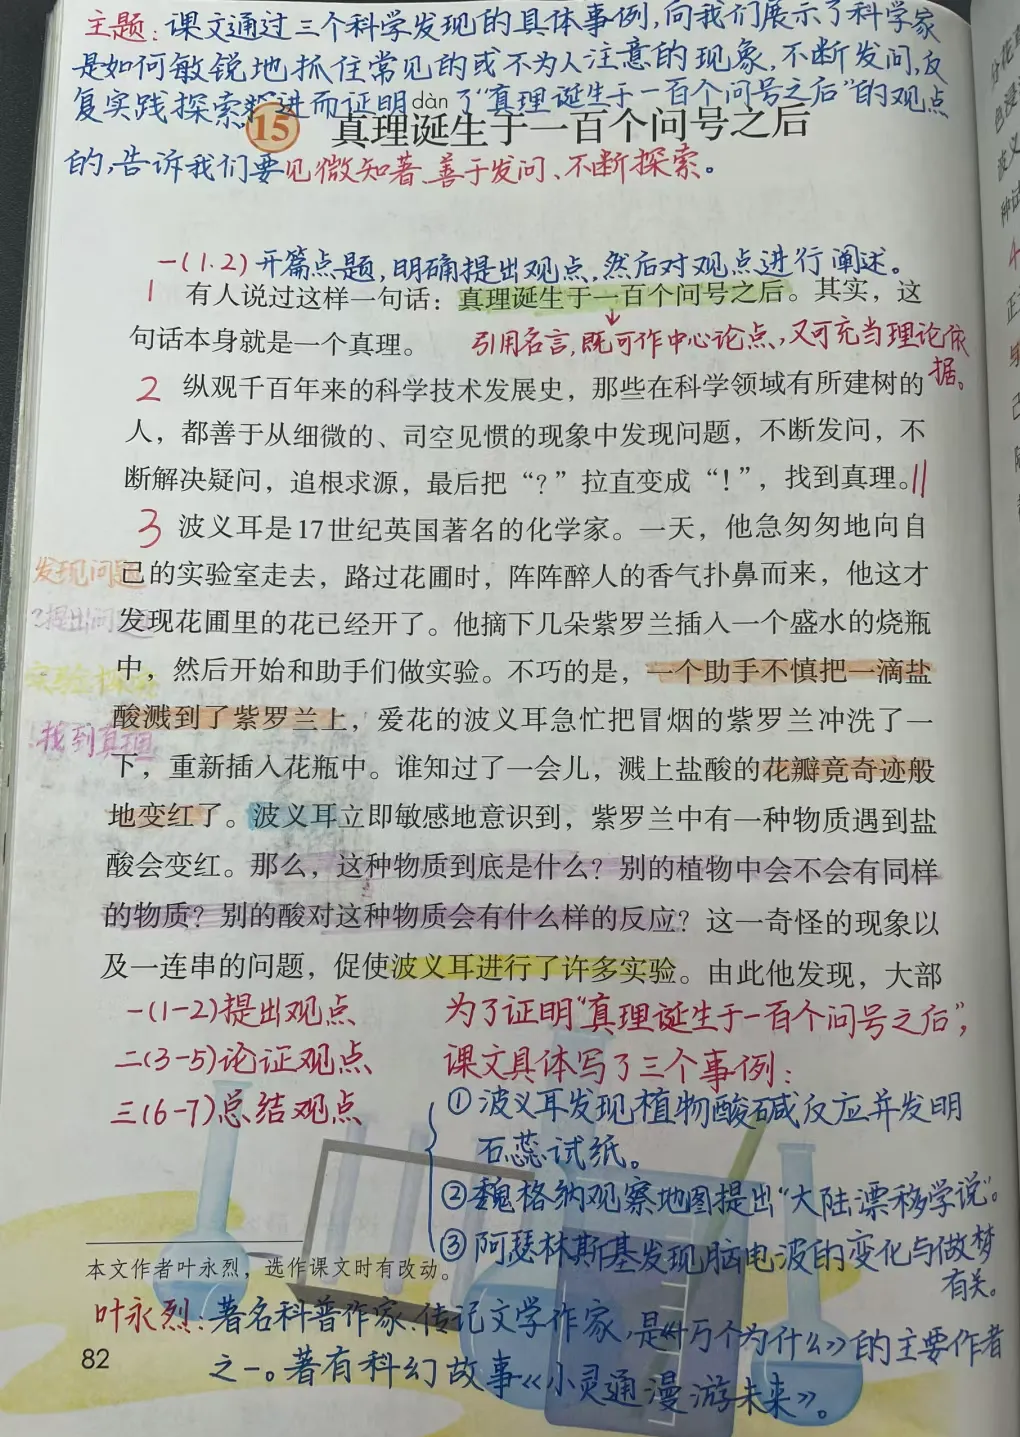 主题:课文通过三个科学发现的具体事例,向我们展示了科学家
是如何敏锐地抓住常见的或不为人注意的现象,不断发问,反
复实践探索,进而证明了“真理诞生于一百个问号之后”的观点
dàn
15 真理诞生于一百个问号之后
的,告诉我们要见微知著、善于发问、不断探索。
一(1.2)开篇点题,明确提出观点,然后对观点进行阐述。
1 有人说过这样一句话：真理诞生于一百个问号之后。其实，这
句话本身就是一个真理。
引用名言,既可作中心论点,又可充当理论依
据。
2 纵观千百年来的科学技术发展史，那些在科学领域有所建树的
人，都善于从细微的、司空见惯的现象中发现问题，不断发问，不
断解决疑问，追根求源，最后把“？”拉直变成“！”，找到真理。
3 波义耳是17世纪英国著名的化学家。一天，他急匆匆地向自
己的实验室走去，路过花圃时，阵阵醉人的香气扑鼻而来，他这才
发现花圃里的花已经开了。他摘下几朵紫罗兰插入一个盛水的烧瓶
中，然后开始和助手们做实验。不巧的是，一个助手不慎把一滴盐
酸溅到了紫罗兰上，爱花的波义耳急忙把冒烟的紫罗兰冲洗了一
下，重新插入花瓶中。谁知过了一会儿，溅上盐酸的花瓣竟奇迹般
地变红了。波义耳立即敏感地意识到，紫罗兰中有一种物质遇到盐
酸会变红。那么，这种物质到底是什么？别的植物中会不会有同样
的物质？别的酸对这种物质会有什么样的反应？这一奇怪的现象以
及一连串的问题，促使波义耳进行了许多实验。由此他发现，大部
发现问题
提出问题
实验探究
找到真理
一(1-2)提出观点
二(3-5)论证观点
三(6-7)总结观点
为了证明“真理诞生于一百个问号之后”,
课文具体写了三个事例:
①波义耳发现植物酸碱反应并发明
石蕊试纸。
②魏格纳观察地图提出“大陆漂移学说”。
③阿瑟林斯基发现脑电波的变化与做梦
有关。
本文作者叶永烈，选作课文时有改动。
叶永烈:著名科普作家、传记文学作家,是《十万个为什么》的主要作者
之一。著有科幻故事《小灵通漫游未来》。
82